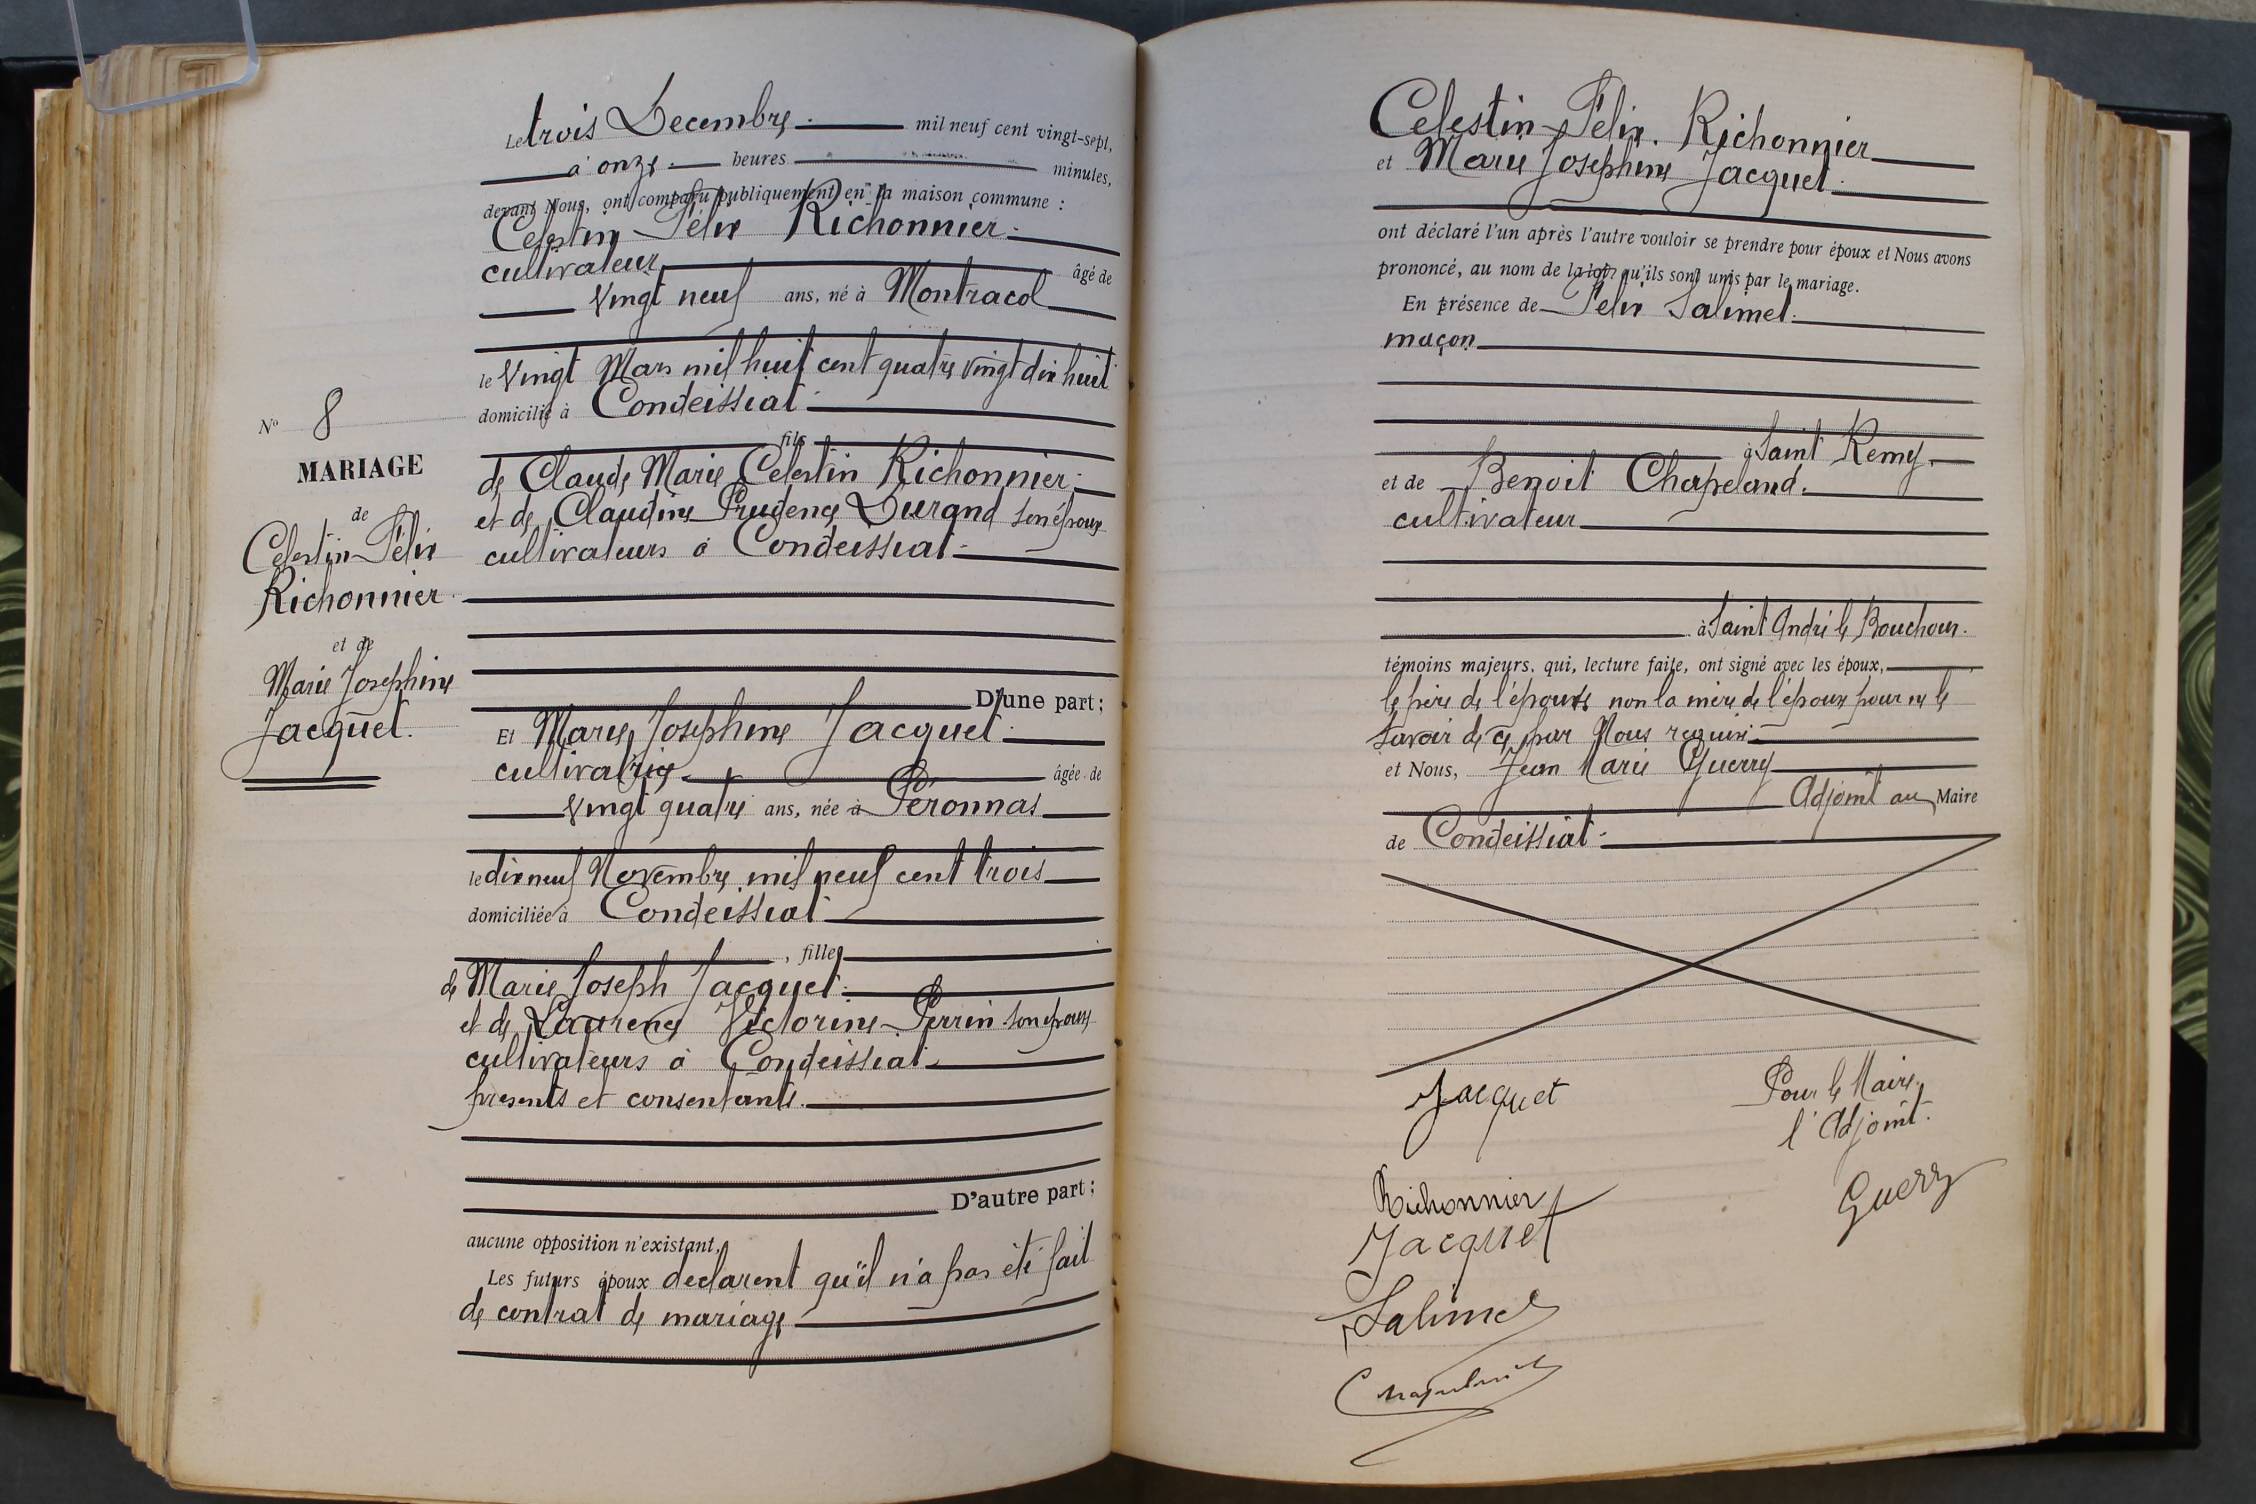 Le trois Decembre mil neuf cent vingt-sept,
à onze heures minutes,
devant Nous, ont comparu publiquement en la maison commune :
Celestin Félix Richonnier
cultivateur âgé de
Vingt neuf ans, né à Montracol
le Vingt Mars mil huit cent quatre vingt dix huit
domicilié à Condeissiat
fils
de Claude Marie Celestin Richonnier
et de Claudine Prudence Durand son épouse
cultivateurs à Condeissiat
D'une part ;
Et Marie Josephine Jacquet
cultivatrice âgée de
Vingt quatre ans, née à Péronnas
le dix neuf Novembre mil neuf cent trois
domiciliée à Condeissiat
, fille
de Marie Joseph Jacquet
et de Laurence Victorine Perrin son épouse
cultivateurs à Condeissiat
presents et consentants.
D'autre part ;
aucune opposition n'existant,
Les futurs époux declarent qu'il n'a pas été fait
de contrat de mariage
No 8
MARIAGE
de
Celestin Félix
Richonnier
et de
Marie Josephine
Jacquet.
Celestin Félix Richonnier
et Marie Josephine Jacquet
ont déclaré l'un après l'autre vouloir se prendre pour époux et Nous avons
prononcé, au nom de la loi, qu'ils sont unis par le mariage.
En présence de Félix Salimet
maçon
à Saint Remy
et de Benoit Chapeland.
cultivateur
à Saint André le Bouchoux.
témoins majeurs, qui, lecture faite, ont signé avec les époux,
le père de l'épouse non la mère de l'époux pour ne le
savoir de ce par Nous requise
et Nous, Jean Marie Guerry
Adjoint au Maire
de Condeissiat
Jacquet
Pour le Maire,
l'Adjoint.
Richonnier
Guerry
Jacquet
Salimet